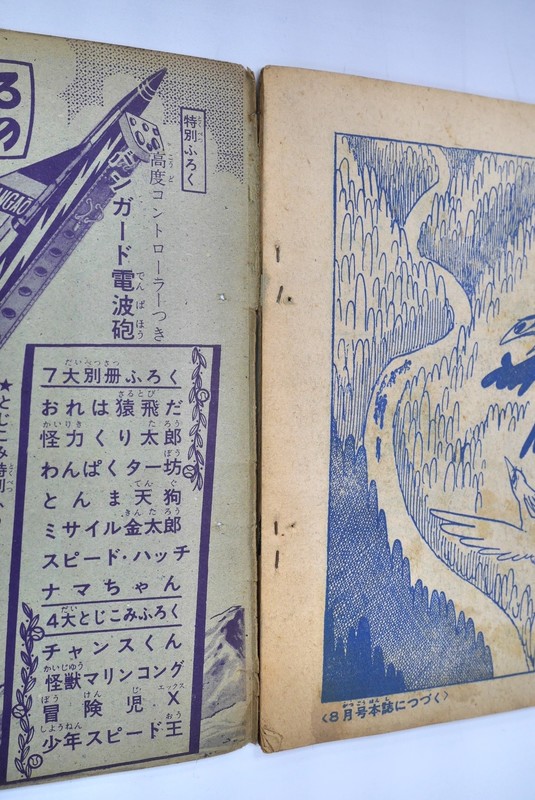 特別ふろく
高度コントローラーつき
ガンガード電波砲
7大別冊ふろく
おれは猿飛だ
怪力くり太郎
わんぱくター坊
とんま天狗
ミサイル金太郎
スピード・ハッチ
ナマちゃん
4大とじこみふろく
チャンスくん
怪獣マリンコング
冒険児X
少年スピード王
★とじこみ特別
〈8月号本誌につづく〉